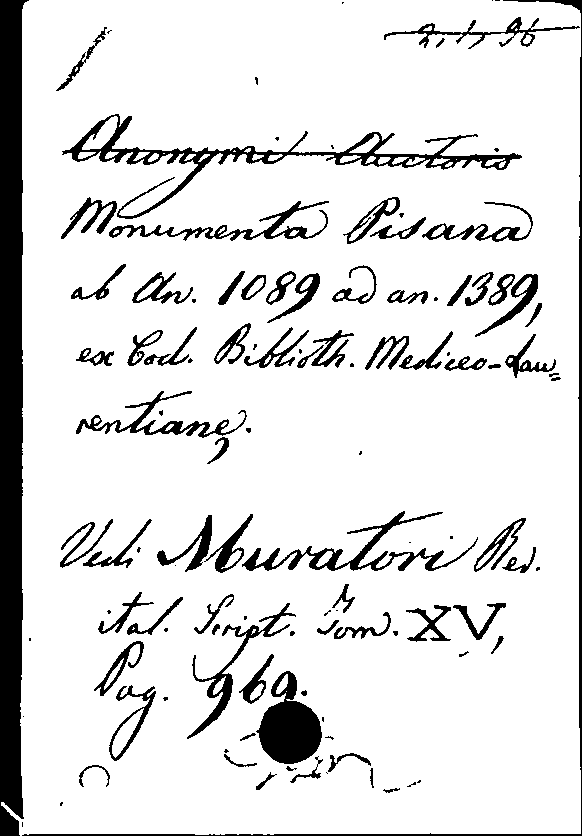 2, 1, 96
Anonymi Auctoris
Monumenta Pisana
ab An. 1089 ad an. 1389,
ex Cod. Biblioth. Mediceo-Lau=
rentianę.
Vedi Muratori Rer.
ital. Script. Tom. XV,
Pag. 969.